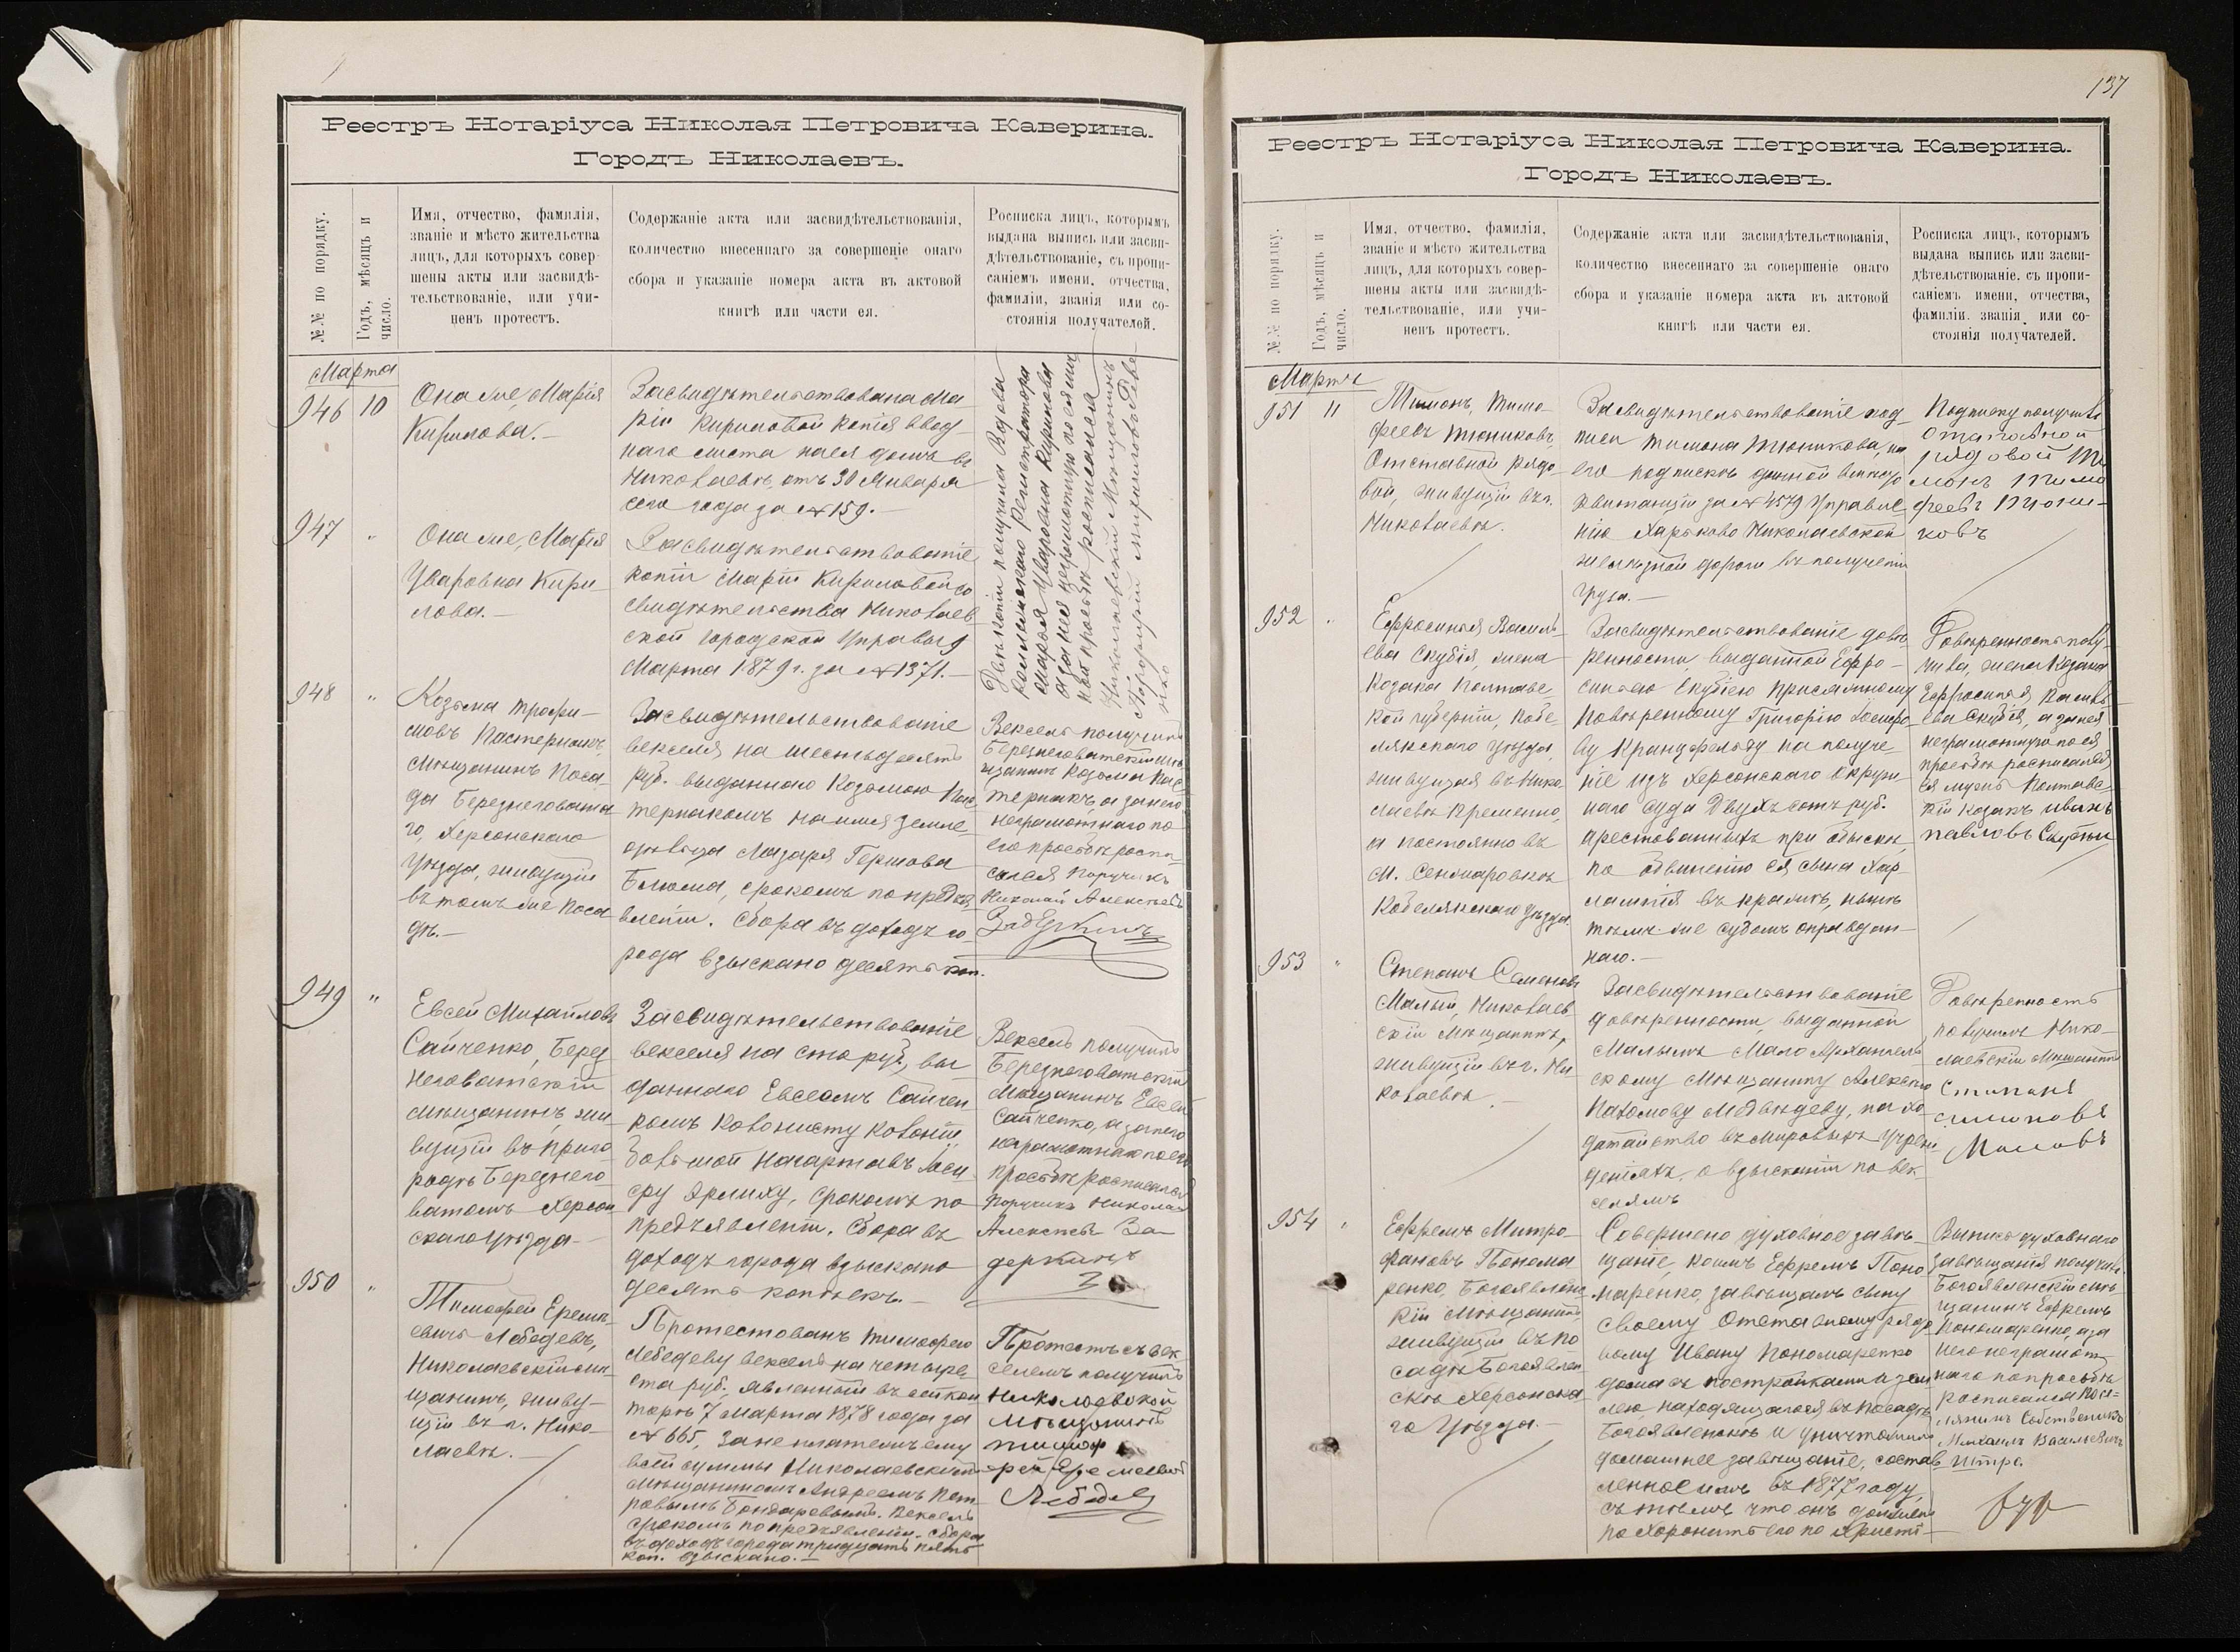 Реестръ Нотаріуса Николая Петровича Каверина.
Городъ Николаевъ.
№№ по порядку.
Годъ, мѣсяцъ и
число.
Имя, отчество, фамилія,
званіе и мѣсто жительства
лицъ, для которыхъ совер-
шены акты или засвидѣ-
тельствованіе, или учи-
ненъ протестъ.
Содержаніе акта или засвидѣтельствованія,
количество внесеннаго за совершеніе онаго
сбора и указаніе номера акта въ актовой
книгѣ или части ея.
Росписка лицъ, которымъ
выдана выпись или засви-
дѣтельствованіе, съ пропи-
саніемъ имени, отчества,
фамиліи, званія или со-
стоянія получателей.
Марта
946 10
Она же, Марія
Кирилова.—
Засвидѣтельствована Ма-
ріи Кириловой копія ввод-
наго листа на ея домъ въ
Николаевѣ, отъ 30 Января
сего года за № 159.—
947 "
Она же, Марія
Уваровна Кири-
лова.—
Засвидѣтельствованіе
копіи Маріи Кириловой со
свидѣтельства Николаев-
ской Городской Управы 9
Марта 1879 г. за № 1371.—
Двѣ копіи получила Вдова
Коллежскаго Регистратора
Марія Уваровна Кирилова
а за нея неграмотную по ея лич-
ной просьбѣ росписался
Николаевскій Мѣщанинъ
948 "
Козьма Трофи-
мовъ Пастернакъ,
Мѣщанинъ Поса-
да Березнеговата-
го, Херсонскаго
Уѣзда, живущій
въ томъ же Поса-
дѣ.—
Засвидѣтельствованіе
векселя на шестьдесятъ
руб. выданнаго Козьмою Пас-
тернакомъ на имя Земле-
дѣльца Лазаря Гершова
Блюма, срокомъ по предъя-
вленіи. Сбора въ доходъ го-
рода взыскано десять коп.
Вексель получилъ
Березнеговатскій мѣ-
щанинъ Козьма Пас-
тернакъ а за него
неграмотнаго по
его просьбѣ роспи-
сался Поручикъ
Николай Алексѣевъ
949 "
Евсей Михайловъ
Сайченко, Берез-
неговатскій
мѣщанинъ, жи-
вущій въ приго-
родѣ Березнего-
ватомъ Херсон-
скаго Уѣзда.—
Засвидѣтельствованіе
векселя на сто руб., вы-
даннаго Евсеемъ Сайчен-
комъ Колонисту Колоніи
Большой Нагартавъ Лей-
зру Ярлиху, срокомъ по
предъявленіи. Сбора въ
доходъ города взыскано
десять копѣекъ.—
Вексель получилъ
Березнеговатскій
Мѣщанинъ Евсей
Сайченко, а за него
неграмотнаго по его
просьбѣ росписался
Поручикъ Николай
Алексѣевъ За-
950 "
Тимофей Еремѣ-
евичъ Лебедевъ,
Николаевскій мѣ-
щанинъ, живу-
щій въ г. Нико-
лаевѣ.—
Протестованъ Тимофею
Лебедеву вексель на четыре
ста руб., явленный въ сей кон-
торѣ 7 Марта 1878 года за
№ 665, за неплатежъ ему
всей суммы Николаевскимъ
мѣщаниномъ Андреемъ Пет-
ровымъ Бондаровымъ. Вексель
срокомъ по предъявленіи. Сбора
въ доходъ города тридцать пять
коп. взыскано.—
Протестъ съ век-
селемъ получилъ
Николаевской
мѣщанинъ
Тимоф
ей Еремеевъ
Лебедев
137
Реестръ Нотаріуса Николая Петровича Каверина.
Городъ Николаевъ.
№№ по порядку.
Годъ, мѣсяцъ и
число.
Имя, отчество, фамилія,
званіе и мѣсто жительства
лицъ, для которыхъ совер-
шены акты или засвидѣ-
тельствованіе, или учи-
ненъ протестъ.
Содержаніе акта или засвидѣтельствованія,
количество внесеннаго за совершеніе онаго
сбора и указаніе номера акта въ актовой
книгѣ или части ея.
Росписка лицъ, которымъ
выдана выпись или засви-
дѣтельствованіе, съ пропи-
саніемъ имени, отчества,
фамиліи, званія или со-
стоянія получателей.
Марта
951 11
Тимонъ Тимо-
феевъ Тюниковъ
Отставной рядо-
вой, живущій въ г.
Николаевѣ.
Засвидѣтельствованіе под-
писи Тимона Тюникова, на
его подпискѣ данной
квитанціи за № 4579 Управле-
нію Харьково Николаевской
желѣзной дороги въ полученіи
груза.—
Подписку получилъ
отставной
рядовой Ти
монъ Тимо
феевъ Тюни-
ковъ
952 "
Ефросинья Василь-
ева Скубія, жена
Козака Полтавс-
кой губерніи, Кобе-
лякскаго уѣзда,
живущая въ Нико-
лаевѣ временно,
а постоянно въ
м. Сенжаровкѣ
Кобелякскаго Уѣзда.
Засвидѣтельствованіе довѣ-
ренности, выданной Ефро-
синьею Скубіею Присяжному
Повѣренному Григорію Іосифо-
ву Кранцфельду на получе-
ніе изъ Херсонскаго Окруж-
наго Суда Двухъ сотъ руб.
арестованныхъ при обыскѣ
по обвиненію ея сына Хар-
лампія въ кражѣ, нынѣ
тѣмъ же судомъ оправдан-
наго.—
Довѣренность полу-
чила, жена Козака
Ефросинья Василь-
ева Скубія, а за нея
неграмотную по ея
просьбѣ росписался
ея мужъ Полтавс-
кій Козакъ Иванъ
Павловъ
953 "
Степанъ Семеновъ
Малый, Николаев-
скій Мѣщанинъ,
живущій въ г. Ни-
колаевѣ.—
Засвидѣтельствованіе
довѣренности, выданной
Малымъ Мало Архангель-
скому Мѣщанину Алексѣю
Пахомову Медвѣдеву, на хо-
датайство въ Мировыхъ Учреж-
деніяхъ, о взысканіи по век-
селямъ
Довѣренность
получилъ Нико-
лаевскій Мѣщанинъ
954 "
Ефремъ Митро-
фановъ Понома-
ренко, Богоявленс-
кій Мѣщанинъ,
живущій въ по-
садѣ Богоявлен-
скѣ Херсонска-
го Уѣзда.—
Совершено духовное завѣ-
щаніе, коимъ Ефремъ Поно-
маренко, завѣщалъ сыну
своему Отставному рядо-
вому Ивану Пономаренко
дома съ постройками и зем-
лею, находящагося въ Посадѣ
Богоявленскѣ и уничтожилъ
домашнее завѣщаніе, состав-
ленное имъ въ 1877 году,
съ тѣмъ что онъ долженъ
похоронить его по Христі-
Выпись духовнаго
завѣщанія получилъ
Богоявленскій мѣ-
щанинъ Ефремъ
Пономаренко, а за
него неграмот-
наго по просьбѣ
росписался Посе-
лянинъ Собственникъ
Михаилъ Васильевичъ